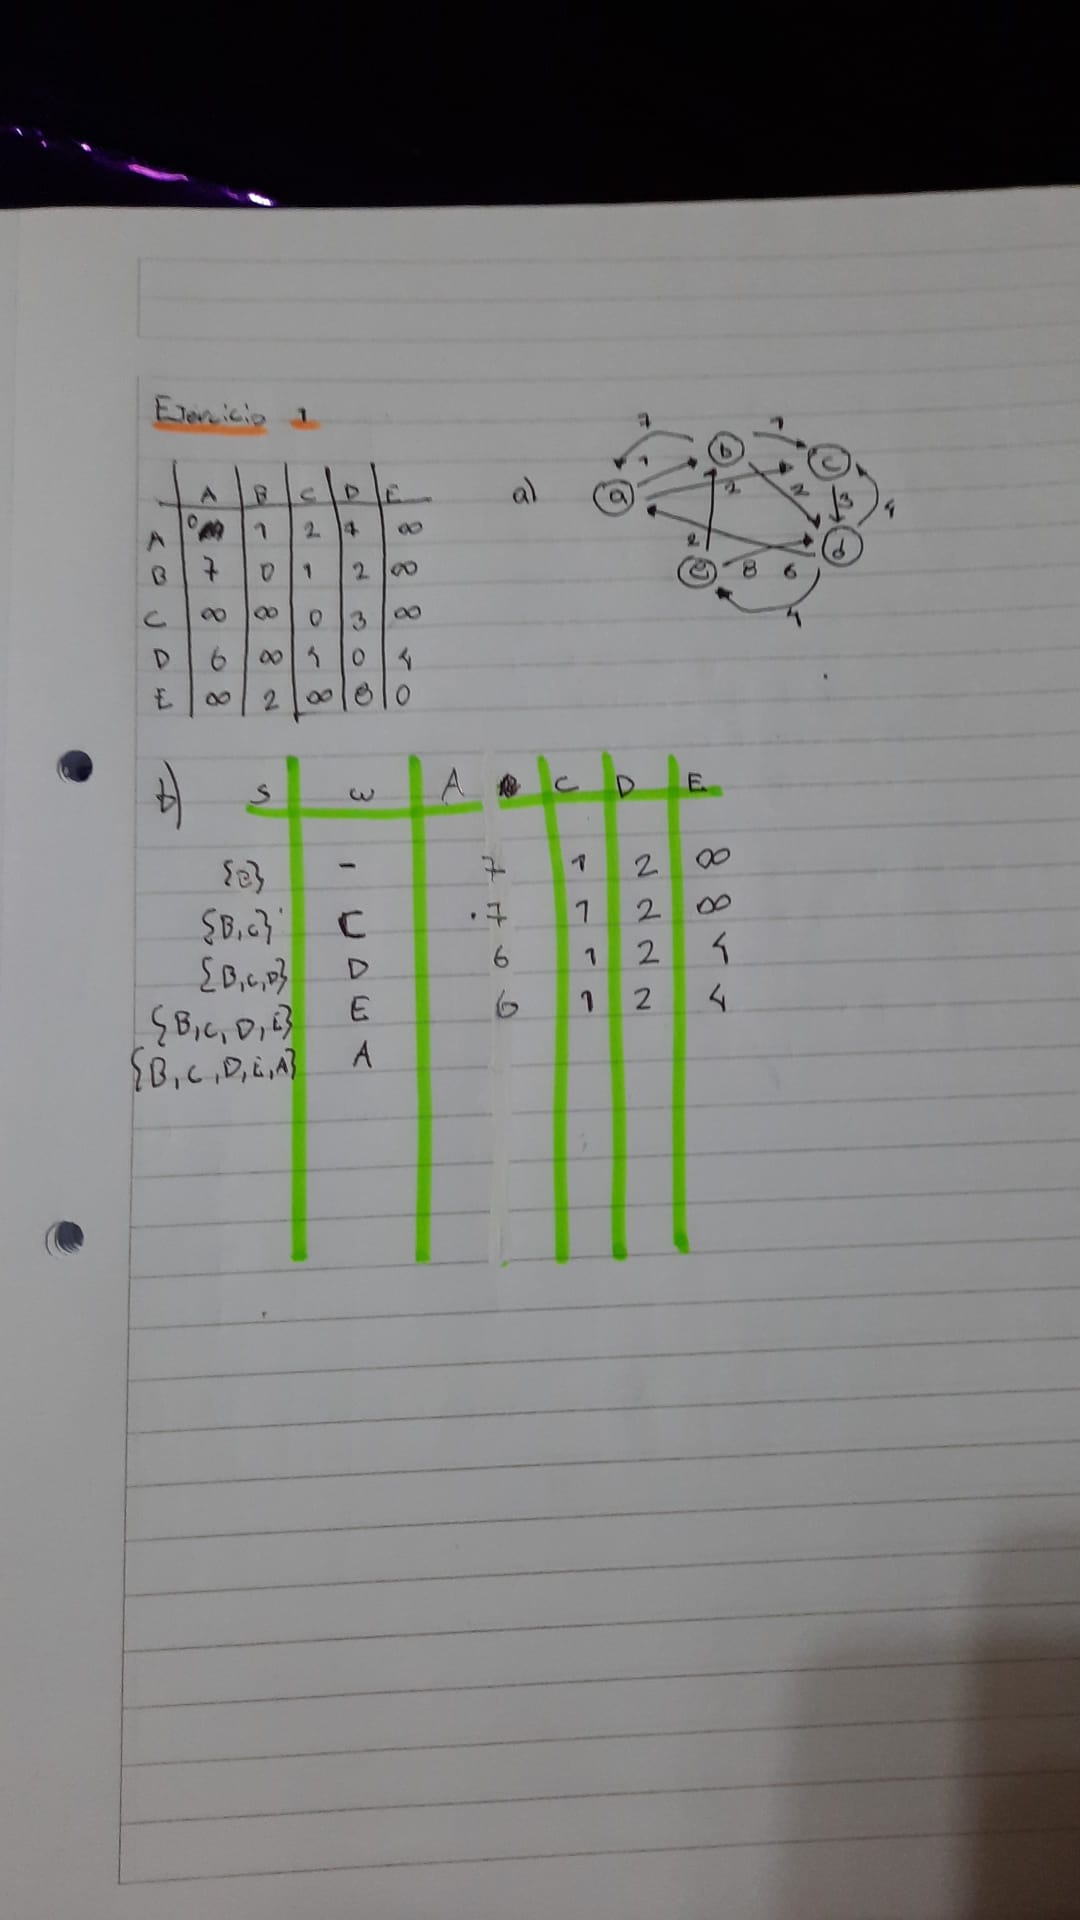 Ejercicio 1
A B C D E
A 0 1 2 7 ∞
B 7 0 1 2 ∞
C ∞ ∞ 0 3 ∞
D 6 ∞ 4 0 4
E ∞ 2 ∞ 8 0
a)
7 1
b c
1 2 2 3 4
a
2 d
e 8 6
4
b) S w A C D E
{B} - 7 1 2 ∞
{B,C} C 7 1 2 ∞
{B,C,D} D 6 1 2 4
{B,C,D,E} E 6 1 2 4
{B,C,D,E,A} A